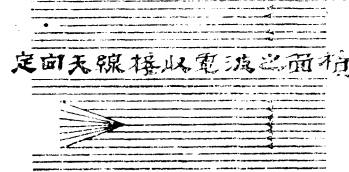 定向天線接收電波之面積